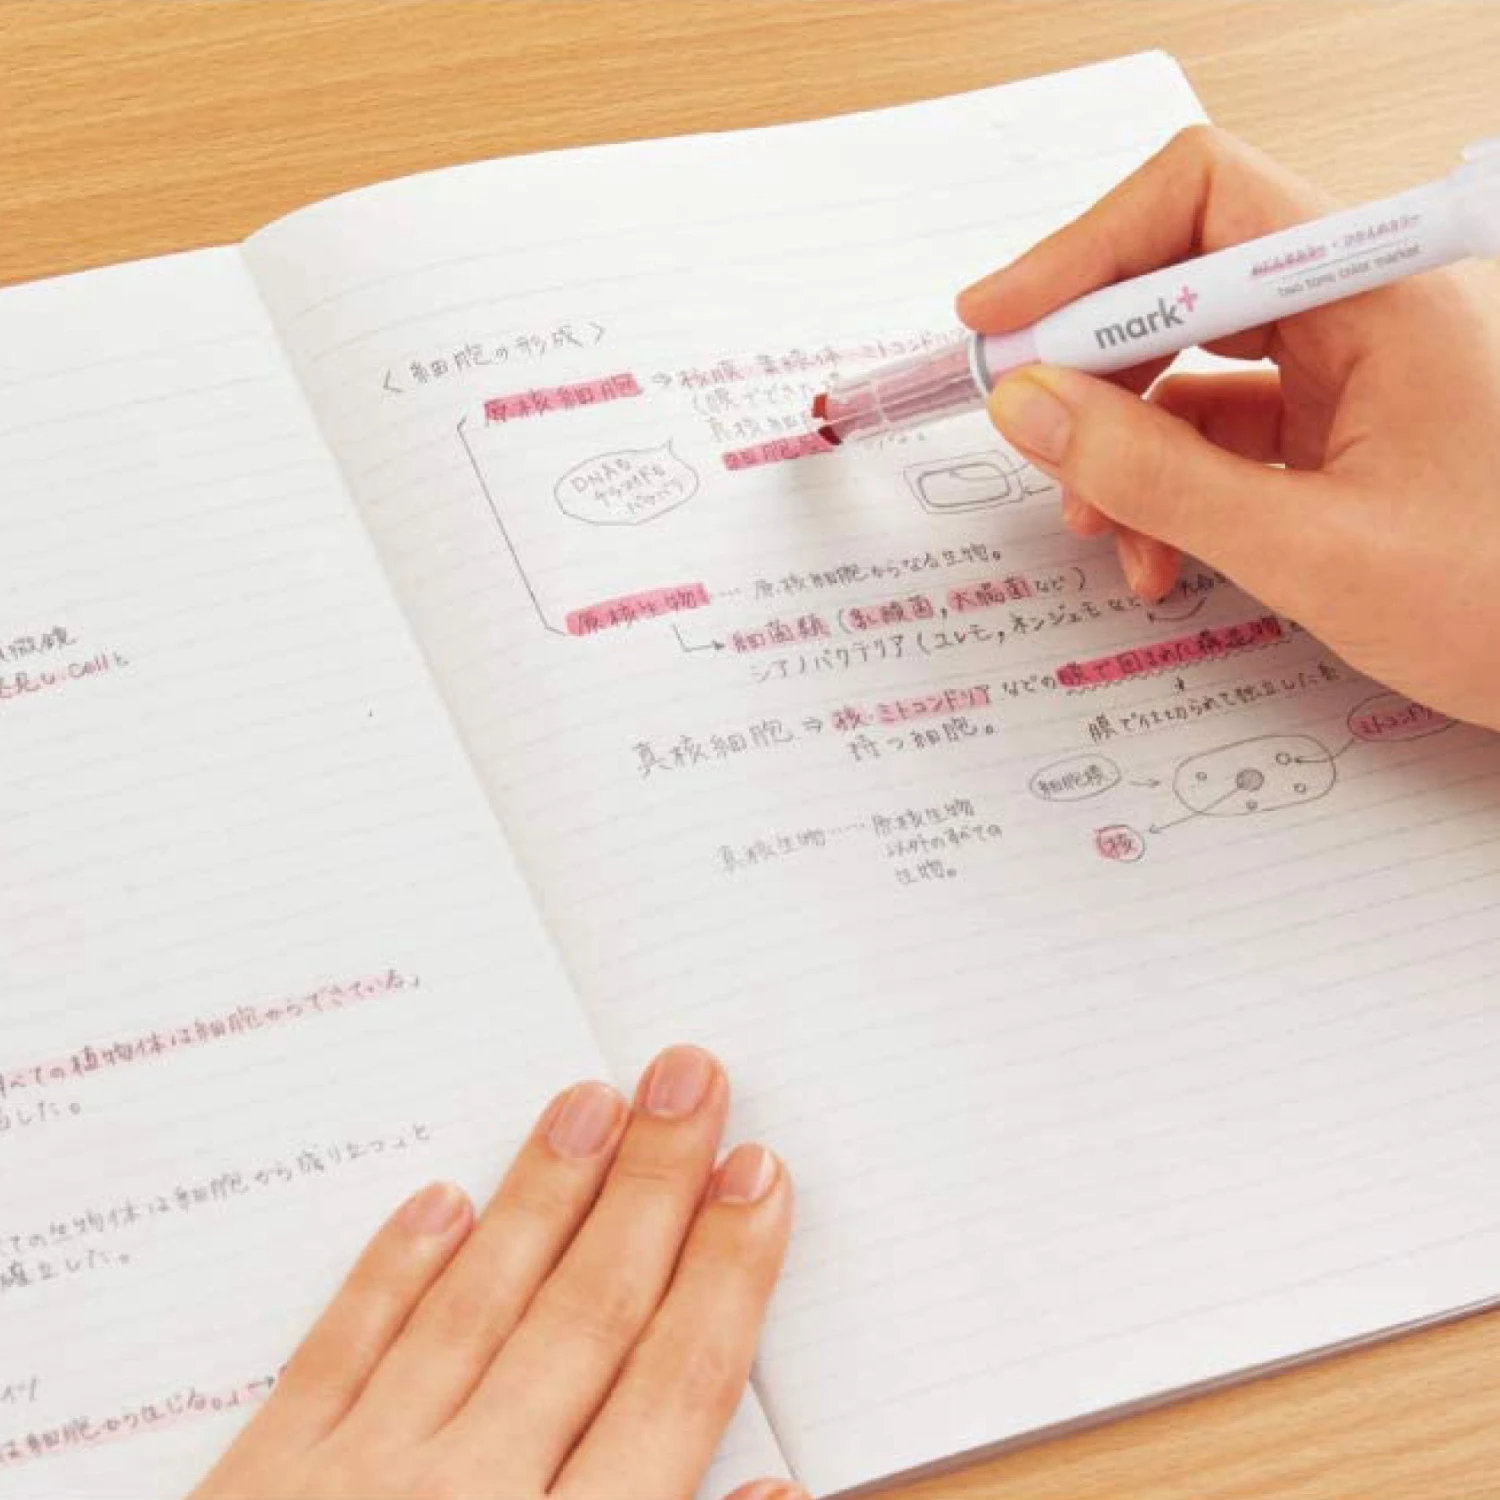 微鏡
見し、Cellと
べての植物体は細胞からできている」
した。
ての生物体は細胞から成り立つ」と
確立した。
は細胞から生じる。」→
<細胞の形成>
原核細胞 ⇒ 核膜・葉緑体・ミトコンドリ
(膜でできた
真核細
細胞壁
DNAは
原核生物 …… 原核細胞からなる生物。
細菌類(乳酸菌,大腸菌など)
シアノバクテリア(ユレモ,ネンジュモなど
真核細胞 ⇒ 核・ミトコンドリア などの膜で囲まれた構造物
持つ細胞。
膜で仕切られて独立した
細胞膜
ミトコンドリ
核
真核生物 …… 原核生物
以外のすべての
生物。
mark+
two tone color marker